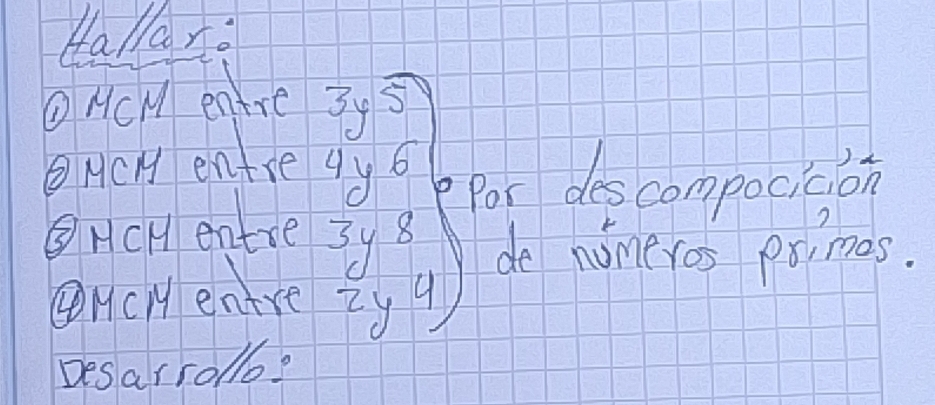 Hallar:
① MCM entre 3 y 5
② MCM entre 4 y 6
③ MCM entre 3 y 8
④ MCM entre 2 y 4
Por descompocición
de números primos.
Desarrollo: